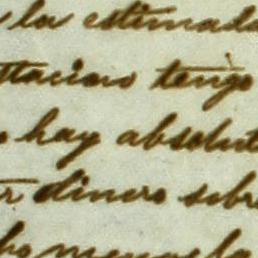 la estimada
ttacion tengo
hay absolut
dinero sobre